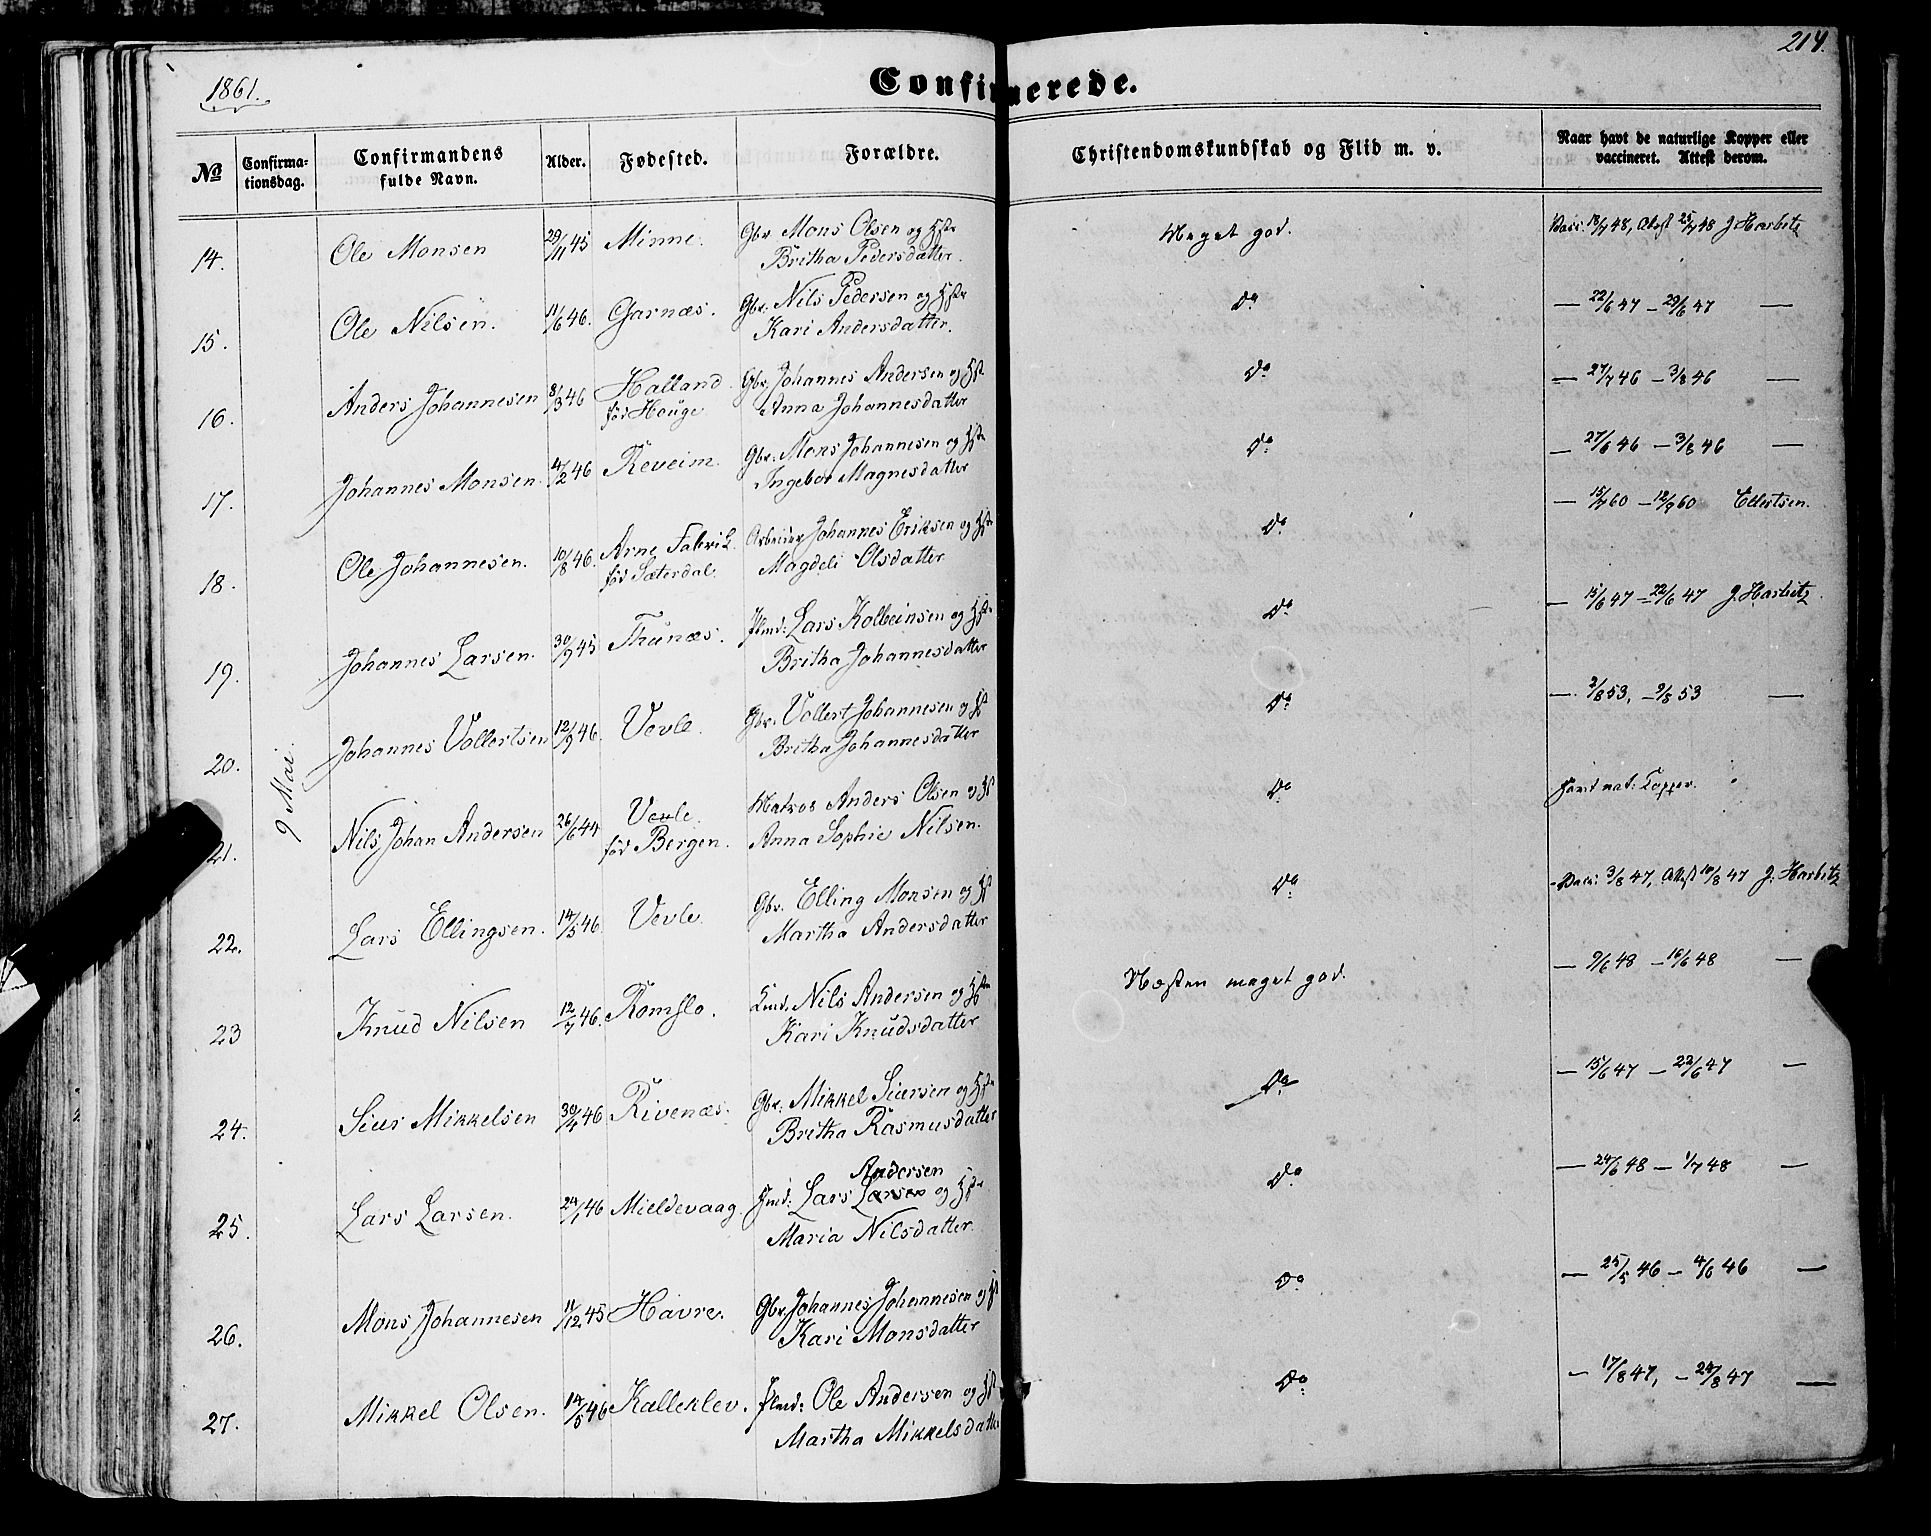 1861.
Confirmerede.
214.
No
Confirma-
tionsdag.
Confirmandens
fulde Navn.
Alder.
Fødested.
Forældre.
Christendomskundskab og Flid m. v.
Naar havt de naturlige Kopper eller
vaccineret. Attest derom.
9 Mai.
14. Ole Monsen 29/11 45 Minne. Gbr. Mons Olsen og Hst Meget god. Vacc. 18/7 48, Attest 25/7 48 J. Harbitz
Britha Pedersdatter.
15. Ole Nilsen. 11/6 46. Garnæs. Gbr. Nils Pedersen og Hst Do — 22/6 47 — 29/6 47 —
Kari Andersdatter.
16. Anders Johannesen 8/3 46 Halland Gbr. Johannes Andersen og Hst Do — 27/7 46 — 3/8 46 —
før Houge Anna Johannesdatter
17. Johannes Monsen 4/2 46 Reveim Gbr. Mons Johannesen og Hst Do — 27/6 46 — 3/8 46 —
Ingebor Magnesdatter
18. Ole Johannesen. 10/8 46. Arne Fabrik Arbeider Johannes Eriksen og Hst Do — 15/7 60 — 12/9 60 Ellertsen.
før Sæterdal. Magdeli Olsdatter
19. Johannes Larsen. 30/9 45 Thunæs. Lars Kolbeinsen og Hst Do — 15/6 47 — 22/6 47 J. Harbitz
Britha Johannesdatter
20. Johannes Vollertsen 12/9 46 Vevle. Gbr. Vollert Johannesen og Hst Do — 2/8 53, — 9/8 53 —
Britha Johannesdatter
21. Nils Johan Andersen 26/6 44 Vevle. Matros Anders Olsen og Hst Do havt nat: Kopper.
fød Bergen. Anna Sophie Nilsen.
22. Lars Ellingsen. 14/5 46 Vevle. Gbr. Elling Monsen og Hst Do Vacc: 3/8 47, Attest 10/8 47 J. Harbitz
Martha Andersdatter
23 Knud Nilsen 12/7 46. Romslo. Nils Andersen og Hst Næsten meget god. — 9/6 48 — 16/6 48 —
Kari Knudsdatter
24. Siur Mikkelsen 30/4 46 Rivenæs. Gbr. Mikkel Siursen og Hst Do — 15/6 47 — 22/6 47 —
Britha Rasmusdatter
Andersen
25. Lars Larsen. 24/1 46 Mieldevaag. Lars Larsen og Hst Do — 24/6 48 — 1/7 48 —
Maria Nilsdatter.
26. Mons Johannesen 11/12 45 Havre. Gbr. Johannes Johannesen og Hst Do — 25/5 46 — 4/6 46 —
Kari Monsdatter
27. Mikkel Olsen. 14/5 46 Kalleklev. Ole Andersen og Hst Do — 17/8 47, — 24/8 47 —
Martha Mikkelsdatter